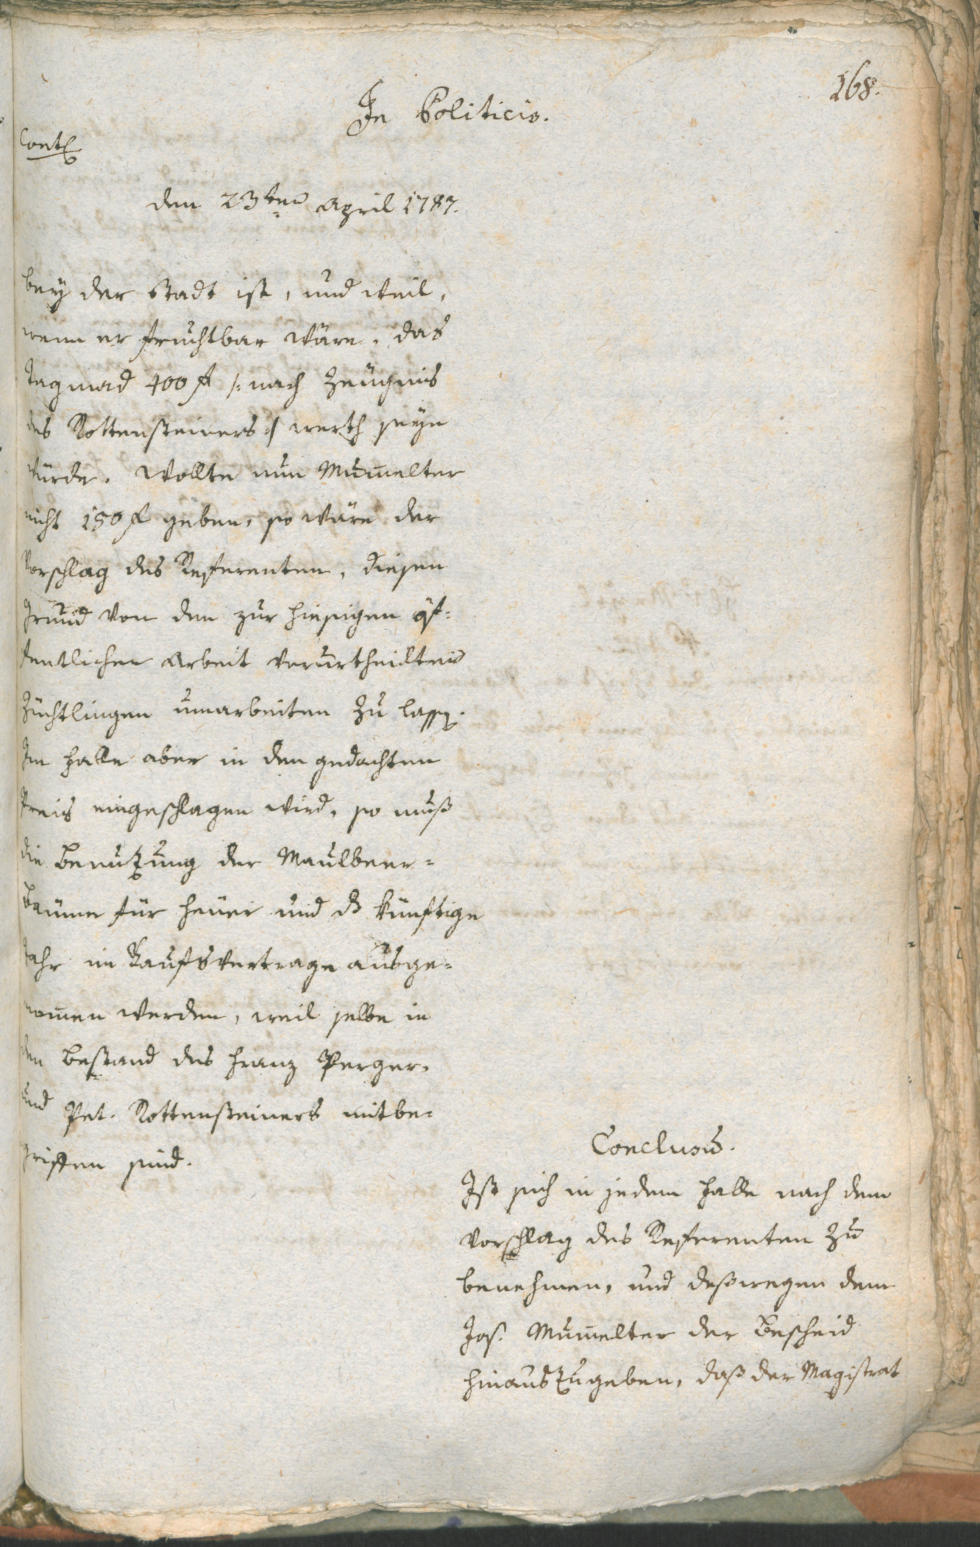 168.
In Politicis.
Cont.
den 23ten April 1787.
bey der Stadt ist, und weil,
wenn er fruchtbar wäre, das
Tagmad 400 f /: nach Zeugnis
des Rottensteiners :/ werth seyn
würde. Wollte nun Mum̅elter
nicht 150 f geben, so wäre der
Vorschlag des Referenten, diesen
Grund von den zur hiesigen öf-
fentlichen Arbeit verurtheilten
Züchtlingen umarbeiten zu lassen.
Im Falle aber in den gedachten
Preis eingeschlagen wird, so muß
die Benutzung der Maulbeer-
bäume für heuer und künftige
Jahr im Kaufsvertrage ausge-
nom̅en werden, weil selbe in
den Bestand des Franz Perger,
und Pet. Rottensteiners mitbe-
griffen sind.
Conclusum.
Ist sich in jedem Falle nach dem
Vorschlag des Referenten zu
benehmen, und deßwegen dem
Jos. Mum̅elter der Bescheid
hinauszugeben, daß der Magistrat